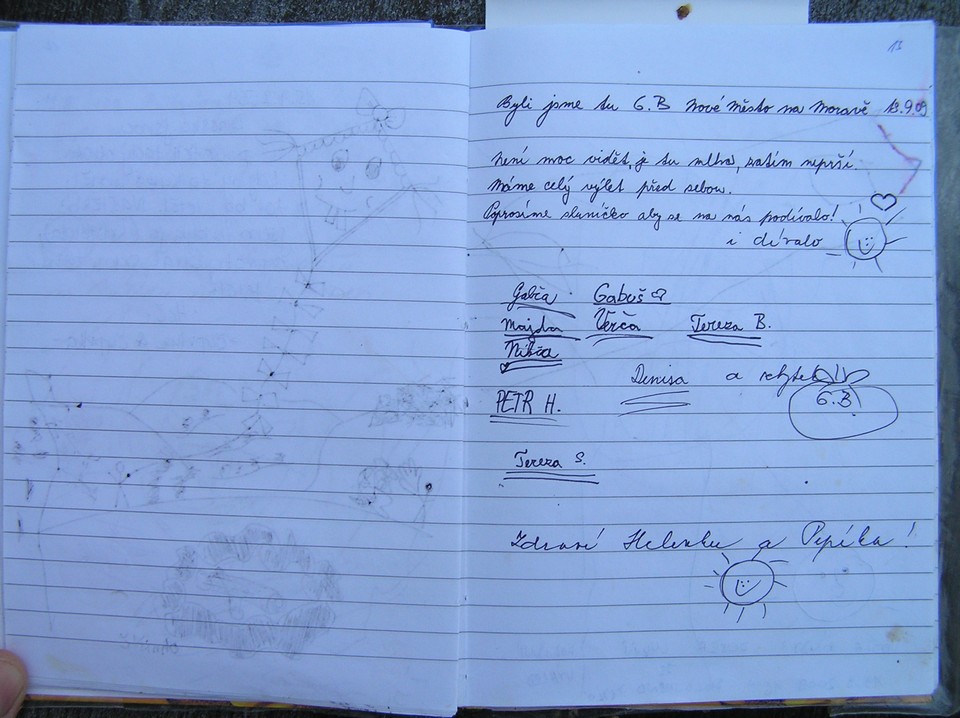 13
Byli jsme tu 6.B Nové Město na Moravě 13.9.09
Není moc vidět, je tu mlha, zatím neprší.
Máme celý výlet před sebou.
Poprosíme sluníčko aby se na nás podívalo!
i dívalo
Gabča Gabuš
Majda Verča Tereza B.
Denisa a zbytek
6.B
PETR H.
Tereza S.
Zdraví Helenku a Pepíka!